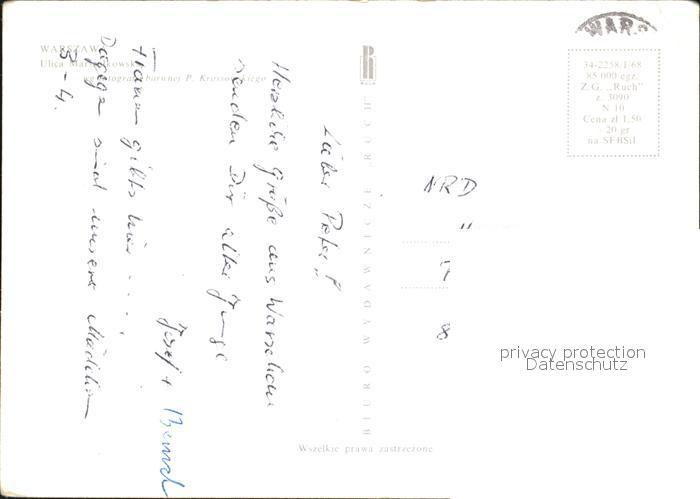 WARSZAWA
Ulica Marszałkowska
wg fotografii barwnej P. Krassowskiego
Lieber Peter!
Herzliche Grüße aus Warschau
senden Dir alter Junge
Josef + Bernd
Frauen gibts hier . . . ,
Dagegen sind unsere Mädchen
3 - 4.
BIURO WYDAWNICZE „RUCH"
Wszelkie prawa zastrzeżone
34-2258.1/68
85 000 egz.
Z.G. „Ruch"
z. 3090
N 10
Cena zł 1,50
+ 20 gr
na SFBSiI
NRD
privacy protection
Datenschutz